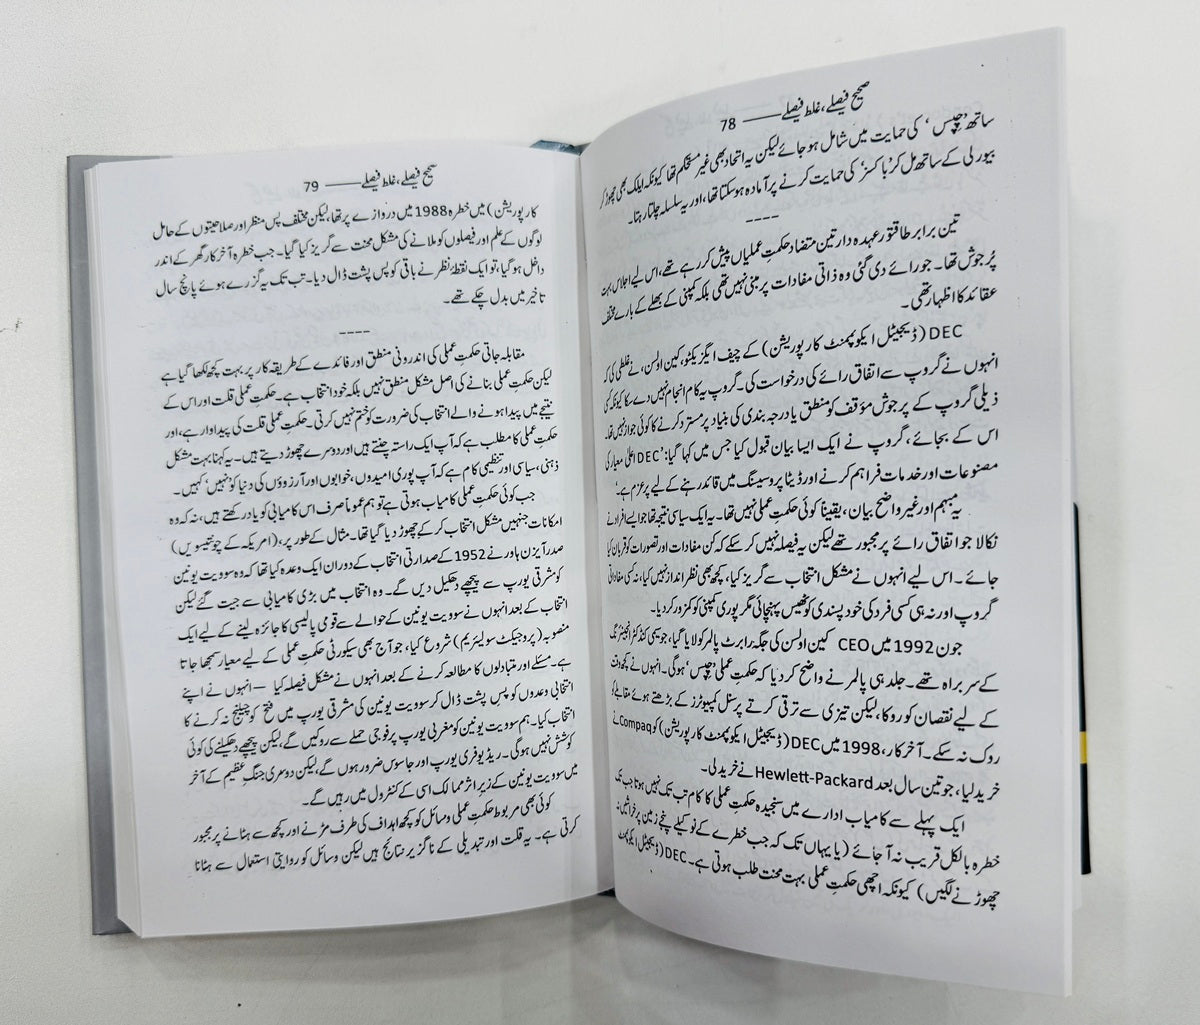 صحیح فیصلے، غلط فیصلے ——— 78
ساتھ ’چپس‘ کی حمایت میں شامل ہو جائے لیکن یہ اتحاد بھی غیر مستحکم تھا کیونکہ ایلک بھی چھوڑ کر
بیورلی کے ساتھ مل کر ’باکسز‘ کی حمایت کرنے پر آمادہ ہو سکتا تھا، اور یہ سلسلہ چلتا رہتا۔
----
تین برابر طاقتور عہدہ دار تین متضاد حکمتِ عملیاں پیش کر رہے تھے، اس لیے اجلاس بہت
پُر جوش تھا۔ جو رائے دی گئی وہ ذاتی مفادات پر مبنی نہیں تھی بلکہ کمپنی کے بھلے کے بارے مختلف
عقائد کا اظہار تھی۔
DEC (ڈیجیٹل ایکوپمنٹ کارپوریشن) کے چیف ایگزیکٹو، کین اولسن، نے غلطی کی کہ
انہوں نے گروپ سے اتفاق رائے کی درخواست کی۔ گروپ یہ کام انجام نہیں دے سکا کیونکہ کسی
ذیلی گروپ کے پر جوش مؤقف کو منطق یا درجہ بندی کی بنیاد پر مسترد کرنے کا کوئی جواز نہیں تھا۔
اس کے بجائے، گروپ نے ایک ایسا بیان قبول کیا جس میں کہا گیا: ’DEC اعلیٰ معیار کی
مصنوعات اور خدمات فراہم کرنے اور ڈیٹا پروسیسنگ میں قائد رہنے کے لیے پرعزم ہے۔‘
یہ مبہم اور غیر واضح بیان، یقیناً کوئی حکمتِ عملی نہیں تھا۔ یہ ایک سیاسی نتیجہ تھا جو ایسے افراد نے
نکالا جو اتفاق رائے پر مجبور تھے لیکن یہ فیصلہ نہیں کر سکے کہ کن مفادات اور تصورات کو قربان کیا
جائے۔ اس لیے انہوں نے مشکل انتخاب سے گریز کیا، کچھ بھی نظر انداز نہیں کیا، نہ کسی مفاداتی
گروپ اور نہ ہی کسی فرد کی خود پسندی کو ٹھیس پہنچائی مگر پوری کمپنی کو کمزور کر دیا۔
جون 1992 میں CEO کین اولسن کی جگہ رابرٹ پالمر کو لایا گیا، جو سیمی کنڈکٹر انجینئرنگ
کے سربراہ تھے۔ جلد ہی پالمر نے واضح کر دیا کہ حکمتِ عملی ’چپس‘ ہوگی۔ انہوں نے کچھ وقت
کے لیے نقصان کو روکا، لیکن تیزی سے ترقی کرتے پرسنل کمپیوٹرز کے بڑھتے ہوئے مقابلے کو
روک نہ سکے۔ آخر کار، 1998 میں DEC (ڈیجیٹل ایکوپمنٹ کارپوریشن) کو Compaq نے
خرید لیا، جو تین سال بعد Hewlett-Packard نے خرید لی۔
ایک پہلے سے کامیاب ادارے میں سنجیدہ حکمتِ عملی کا کام تب تک نہیں ہوتا جب تک
خطرہ بالکل قریب نہ آ جائے (یا یہاں تک کہ جب خطرے کے نوکیلے پنجے زمین پر خراشیں نہ
چھوڑنے لگیں) کیونکہ اچھی حکمتِ عملی بہت محنت طلب ہوتی ہے۔ DEC (ڈیجیٹل ایکوپمنٹ
صحیح فیصلے، غلط فیصلے ——— 79
کارپوریشن) میں خطرہ 1988 میں دروازے پر تھا، لیکن مختلف پس منظر اور صلاحیتوں کے حامل
لوگوں کے علم اور فیصلوں کو ملانے کی مشکل محنت سے گریز کیا گیا۔ جب خطرہ آخر کار گھر کے اندر
داخل ہو گیا، تو ایک نقطۂ نظر نے باقی کو پس پشت ڈال دیا۔ تب تک یہ گزرے ہوئے پانچ سال
تاخیر میں بدل چکے تھے۔
----
مقابلہ جاتی حکمتِ عملی کی اندرونی منطق اور فائدے کے طریقہ کار پر بہت کچھ لکھا گیا ہے
لیکن حکمتِ عملی بنانے کی اصل مشکل منطق نہیں بلکہ خود انتخاب ہے۔ حکمتِ عملی قلت اور اس کے
نتیجے میں پیدا ہونے والے انتخاب کی ضرورت کو ختم نہیں کرتی۔ حکمتِ عملی قلت کی پیداوار ہے، اور
حکمتِ عملی کا مطلب ہے کہ آپ ایک راستہ چنتے ہیں اور دوسرے چھوڑ دیتے ہیں۔ یہ کہنا بہت مشکل
ذہنی، سیاسی اور تنظیمی کام ہے کہ آپ پوری امیدوں، خوابوں اور آرزوؤں کی دنیا کو ’نہیں‘ کہیں۔
جب کوئی حکمتِ عملی کامیاب ہوتی ہے تو ہم عموماً صرف اس کامیابی کو یاد رکھتے ہیں، نہ کہ وہ
امکانات جنہیں مشکل انتخاب کر کے چھوڑ دیا گیا تھا۔ مثال کے طور پر، (امریکہ کے چونتیسویں)
صدر آیزن ہاور نے 1952 کے صدارتی انتخاب کے دوران ایک وعدہ کیا تھا کہ وہ سوویت یونین
کو مشرقی یورپ سے پیچھے دھکیل دیں گے۔ وہ انتخاب میں بڑی کامیابی سے جیت گئے لیکن
انتخاب کے بعد انہوں نے سوویت یونین کے حوالے سے قومی پالیسی کا جائزہ لینے کے لیے ایک
منصوبہ (پروجیکٹ سولیئریم) شروع کیا، جو آج بھی سیکورٹی حکمتِ عملی کے لیے معیار سمجھا جاتا
ہے۔ مسئلے اور متبادلوں کا مطالعہ کرنے کے بعد انہوں نے مشکل فیصلہ کیا — انہوں نے اپنے
انتخابی وعدوں کو پسِ پشت ڈال کر سوویت یونین کی مشرقی یورپ میں فتح کو چیلنج نہ کرنے کا
انتخاب کیا۔ ہم سوویت یونین کو مغربی یورپ پر فوجی حملے سے روکیں گے، لیکن پیچھے دھکیلنے کی کوئی
کوشش نہیں ہوگی۔ ریڈیو فری یورپ اور جاسوس ضرور ہوں گے، لیکن دوسری جنگِ عظیم کے آخر
میں سوویت یونین کے زیرِ اثر ممالک اسی کے کنٹرول میں رہیں گے۔
کوئی بھی مربوط حکمتِ عملی وسائل کو کچھ اہداف کی طرف مڑنے اور کچھ سے ہٹانے پر مجبور
کرتی ہے۔ یہ قلت اور تبدیلی کے ناگزیر نتائج ہیں لیکن وسائل کو روایتی استعمال سے ہٹانا